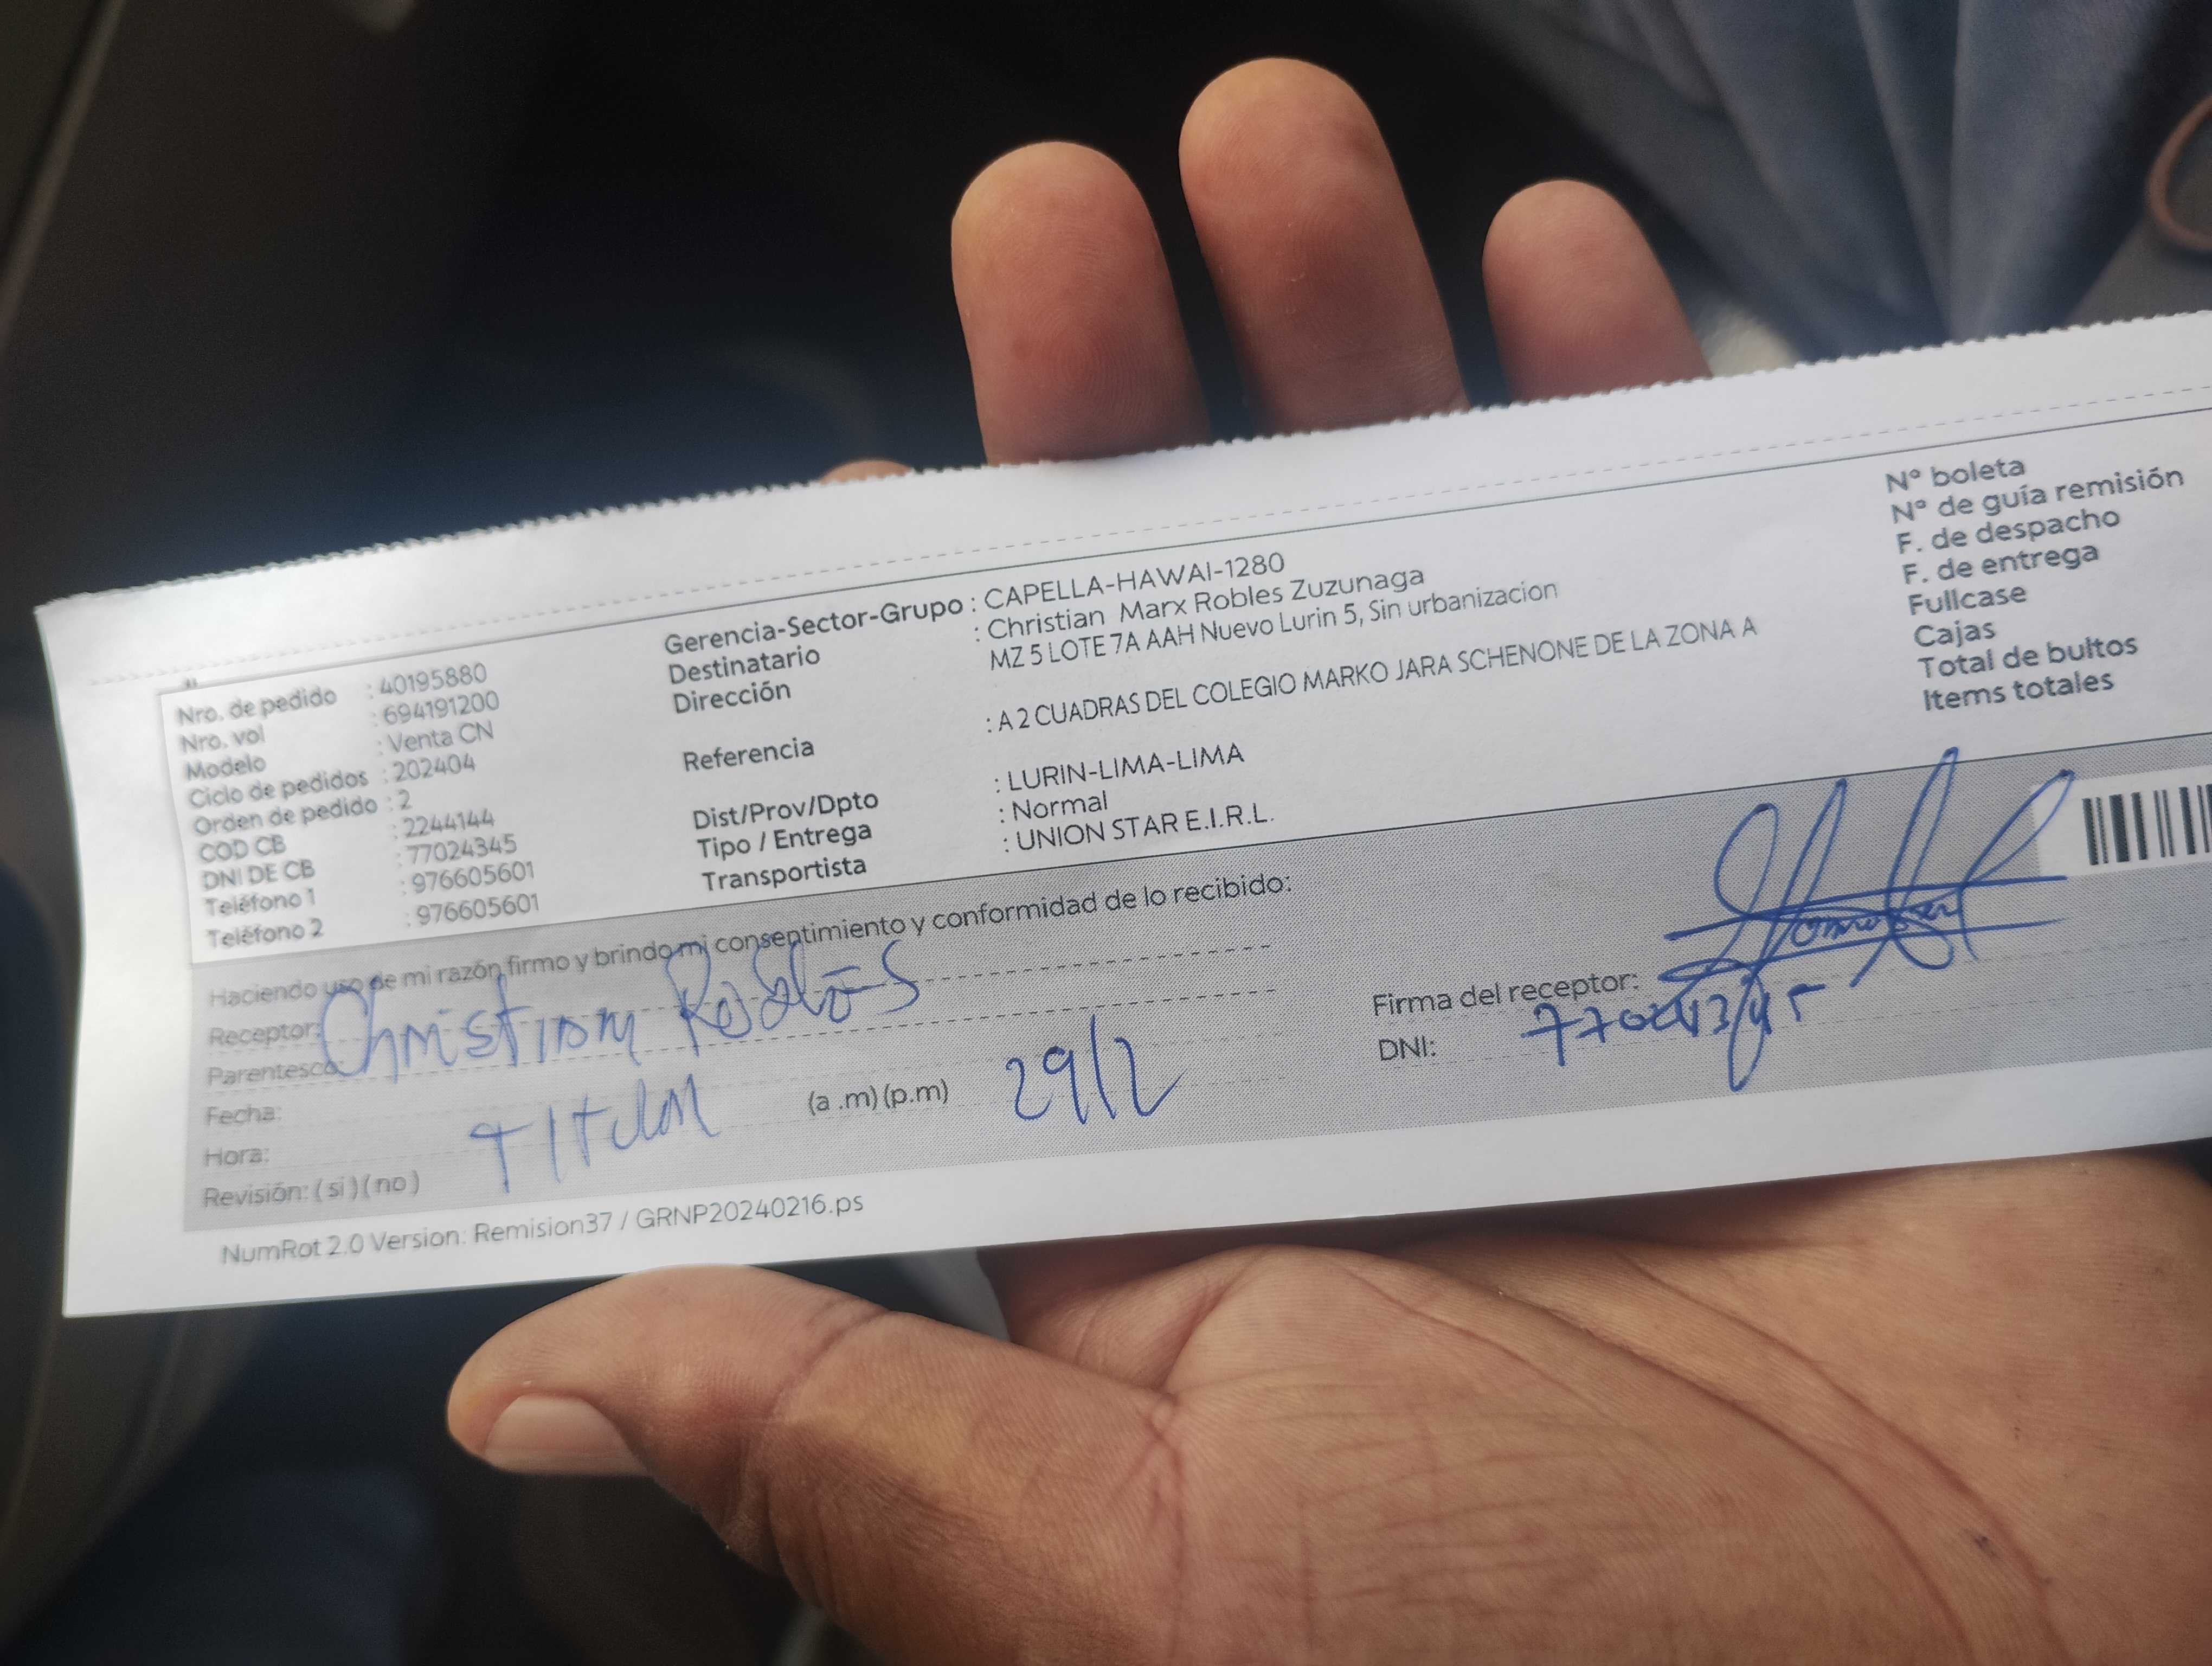 Nro. de pedido : 40195880
Nro. vol : 694191200
Modelo : Venta CN
Ciclo de pedidos : 202404
Orden de pedido : 2
COD CB : 2244144
DNI DE CB : 77024345
Teléfono 1 : 976605601
Teléfono 2 : 976605601
Gerencia-Sector-Grupo : CAPELLA-HAWAI-1280
Destinatario : Christian Marx Robles Zuzunaga
Dirección MZ 5 LOTE 7A AAH Nuevo Lurin 5, Sin urbanizacion
Referencia : A 2 CUADRAS DEL COLEGIO MARKO JARA SCHENONE DE LA ZONA A
Dist/Prov/Dpto : LURIN-LIMA-LIMA
Tipo / Entrega : Normal
Transportista : UNION STAR E.I.R.L.
N° boleta
N° de guía remisión
F. de despacho
F. de entrega
Fullcase
Cajas
Total de bultos
Items totales
Haciendo uso de mi razón firmo y brindo mi consentimiento y conformidad de lo recibido:
Receptor: Christian Robles
Parentesco
Fecha:
Hora: (a .m) (p.m) 29/2
Revisión: ( si ) ( no ) Titular
Firma del receptor:
DNI: 77024345
NumRot 2.0 Version: Remision37 / GRNP20240216.ps